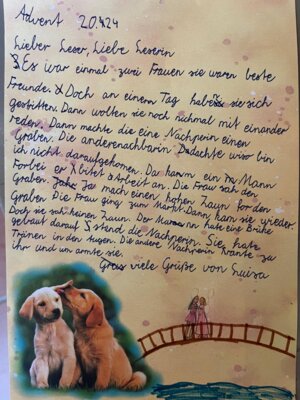 Advent 20.4.24
Lieber Leser, Liebe Leserin
Es war einmal zwei Frauen sie waren beste
Freunde. Doch an einem Tag haben sie sich
gestritten. Dann wolten sie noch nichmal mit einander
reden. Dann machte die eine Nachperin einen
Graben. Die anderenachbarin dachte wiso bin
ich nicht daraufgekomen. Da kamm ein Mann
Forbei er bitet Arbeit an. Die Frau sah den
Graben Ja mach einen hohen Zaun for den
Graben Die Frau ging zum Markt. Dann kam sie wieder.
Doch sie sah keinen Zaun. Der Mann hate eine Brüke
gebaut darauf stand die Nachperin. Sie hate
Tränen in den Augen. Die andere Nachperin rante zu
ihr und um armte sie.
viele Grüße von Luisa